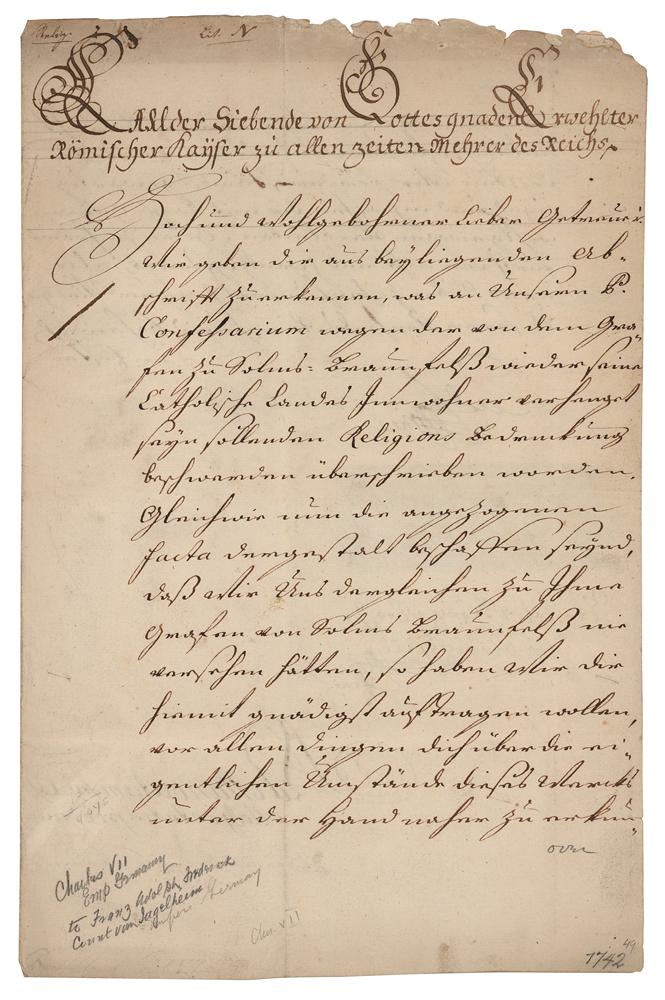 Lit. N
Carl der Siebende von Gottes gnaden Erwehlter
Römischer Kayser zu allen zeiten Mehrer des Reichs
Hoch und Wohlgebohrner Lieber Getreuer.
Wir geben dir aus beyliegenden Ab-
schrifft zu erkennen, was an Unsern P.
Confessarium wegen der von dem Gra-
fen zu Solms-Braunfelß wieder seine
Catholische Landes Innwohner verhenget
seyn sollenden Religions Bedruckung
beschwerden überschrieben worden.
Gleichwie nun die angezogenen
facta dergestalt beschaffen seynd,
daß Wir Uns dergleichen zu Ihme
Grafen von Solms Braunfelß nie
versehen hätten, so haben Wir dir
hiemit gnädigst aufftragen wollen,
vor allen Dingen dich über die ei-
gentlichen Umstände dieses Wercks
unter der Hand naher zu erkun-
over
Charles VII
Emp Germany
to Franz Adolph Frederick
Count von Ingelheim
Germany
Chas VII
1742
49